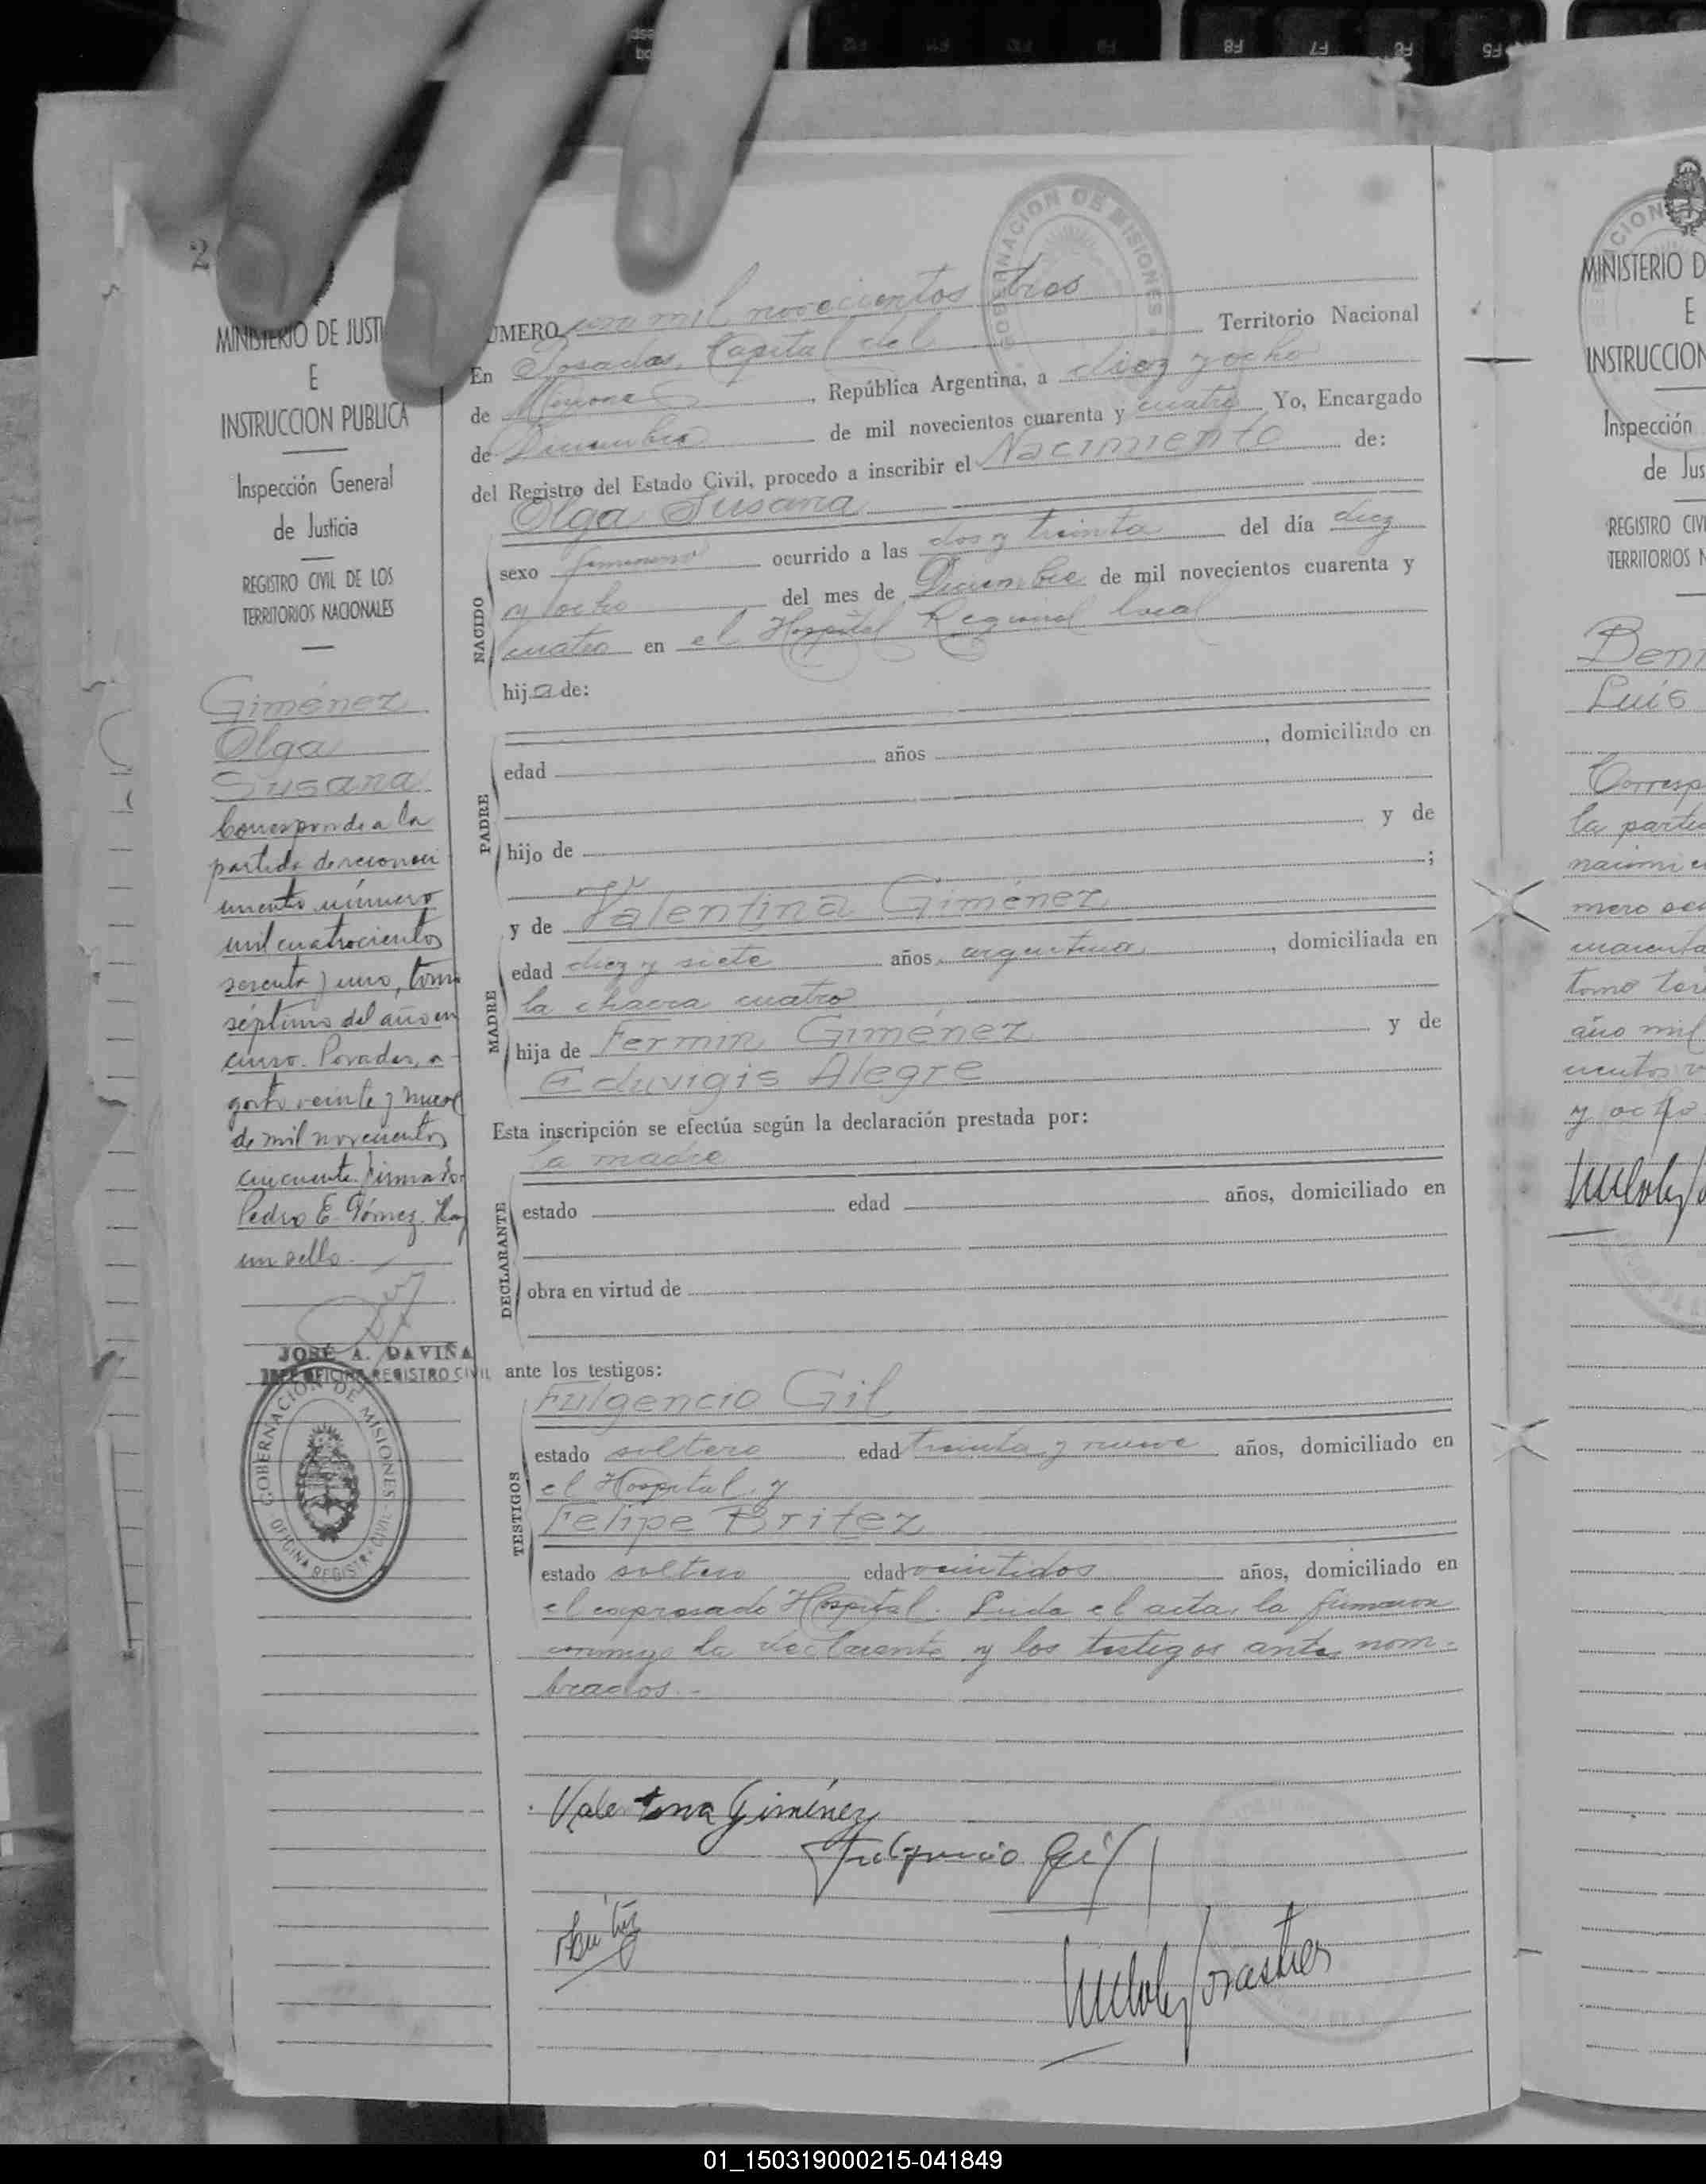 F12 F11 F10 F9 F8 F7 F6 F5
2
MINISTERIO DE JUSTI
E
INSTRUCCION PUBLICA
Inspección General
de Justicia
REGISTRO CIVIL DE LOS
TERRITORIOS NACIONALES
Giménez
Olga
Susana
Corresponde a la
partida de reconoci
miento número
mil cuatrocientos
sesenta y uno, tomo
séptimo del año en
curso. Posadas, a-
gosto veinte y nueve
de mil novecientos
cincuenta. Firmado:
Pedro E. Gómez. Hay
un sello.
JOSÉ A. DAVIÑA
JEFE OFICINA REGISTRO CIVIL
GOBERNACION DE MISIONES
OFICINA REGISTRO CIVIL
GOBERNACION DE MISIONES
UMERO mil novecientos tres
En Posadas, Capital del Territorio Nacional
de Misiones, República Argentina, a diez y ocho
de Diciembre de mil novecientos cuarenta y cuatro Yo, Encargado
del Registro del Estado Civil, procedo a inscribir el Nacimiento de:
Olga Susana
NACIDO
sexo femenino ocurrido a las dos y treinta del día diez
y ocho del mes de Diciembre de mil novecientos cuarenta y
cuatro en el Hospital Regional local
hija de:
PADRE
edad años , domiciliado en
hijo de y de
;
y de Valentina Giménez
MADRE
edad diez y siete años, argentina, domiciliada en
la chacra cuatro
hija de Fermin Giménez y de
Eduvigis Alegre
Esta inscripción se efectúa según la declaración prestada por:
la madre
DECLARANTE
estado edad años, domiciliado en
obra en virtud de
ante los testigos:
Fulgencio Gil
TESTIGOS
estado soltero edad treinta y nueve años, domiciliado en
el Hospital y
Felipe Britez
estado soltero edad veintidos años, domiciliado en
el expresado Hospital. Leida el acta, la firmaron
conmigo la declarante y los testigos antes nom-
brados.-
Valentina Giménez
Fulgencio Gil
Britez
MINISTERIO D
E
INSTRUCCION
Inspección
de Jus
REGISTRO CIVI
TERRITORIOS N
Beni
Luis
Corresp
la partid
nacimie
mero
cuarenta
tomo
año mil
cientos v
y ocho
01_150319000215-041849